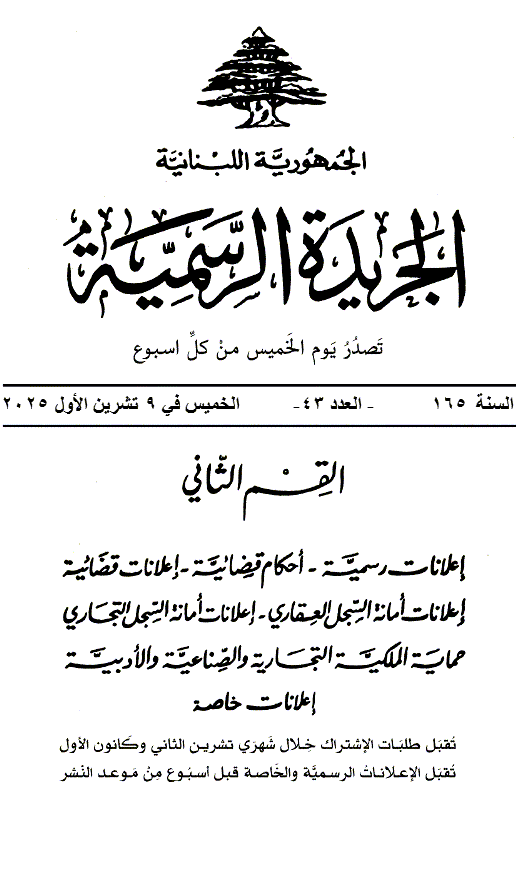 الجمهوريّة اللبنانيّة
الجريدة الرسميّة
تَصدُرُ يَوم الخَميس منْ كلِّ اسبوع
السنة ١٦٥ - العدد ٤٣- الخميس في ٩ تشرين الأول ٢٠٢٥
القِسْم الثّاني
إعلانات رسميّة - أحكام قضائيّة - إعلانات قضائية
إعلانات أمانة السّجل العقاري - إعلانات أمانة السّجل التجاري
حماية الملكيّة التجارية والصّناعيّة والأدبيّة
إعلانات خاصة
تُقبَل طلبَات الإشتراك خِلال شَهرَي تشرين الثاني وكَانون الأول
تُقبَل الإعلاناتُ الرسميَّة والخَاصة قبل أسبُوع مِنْ مَوعد النَشر